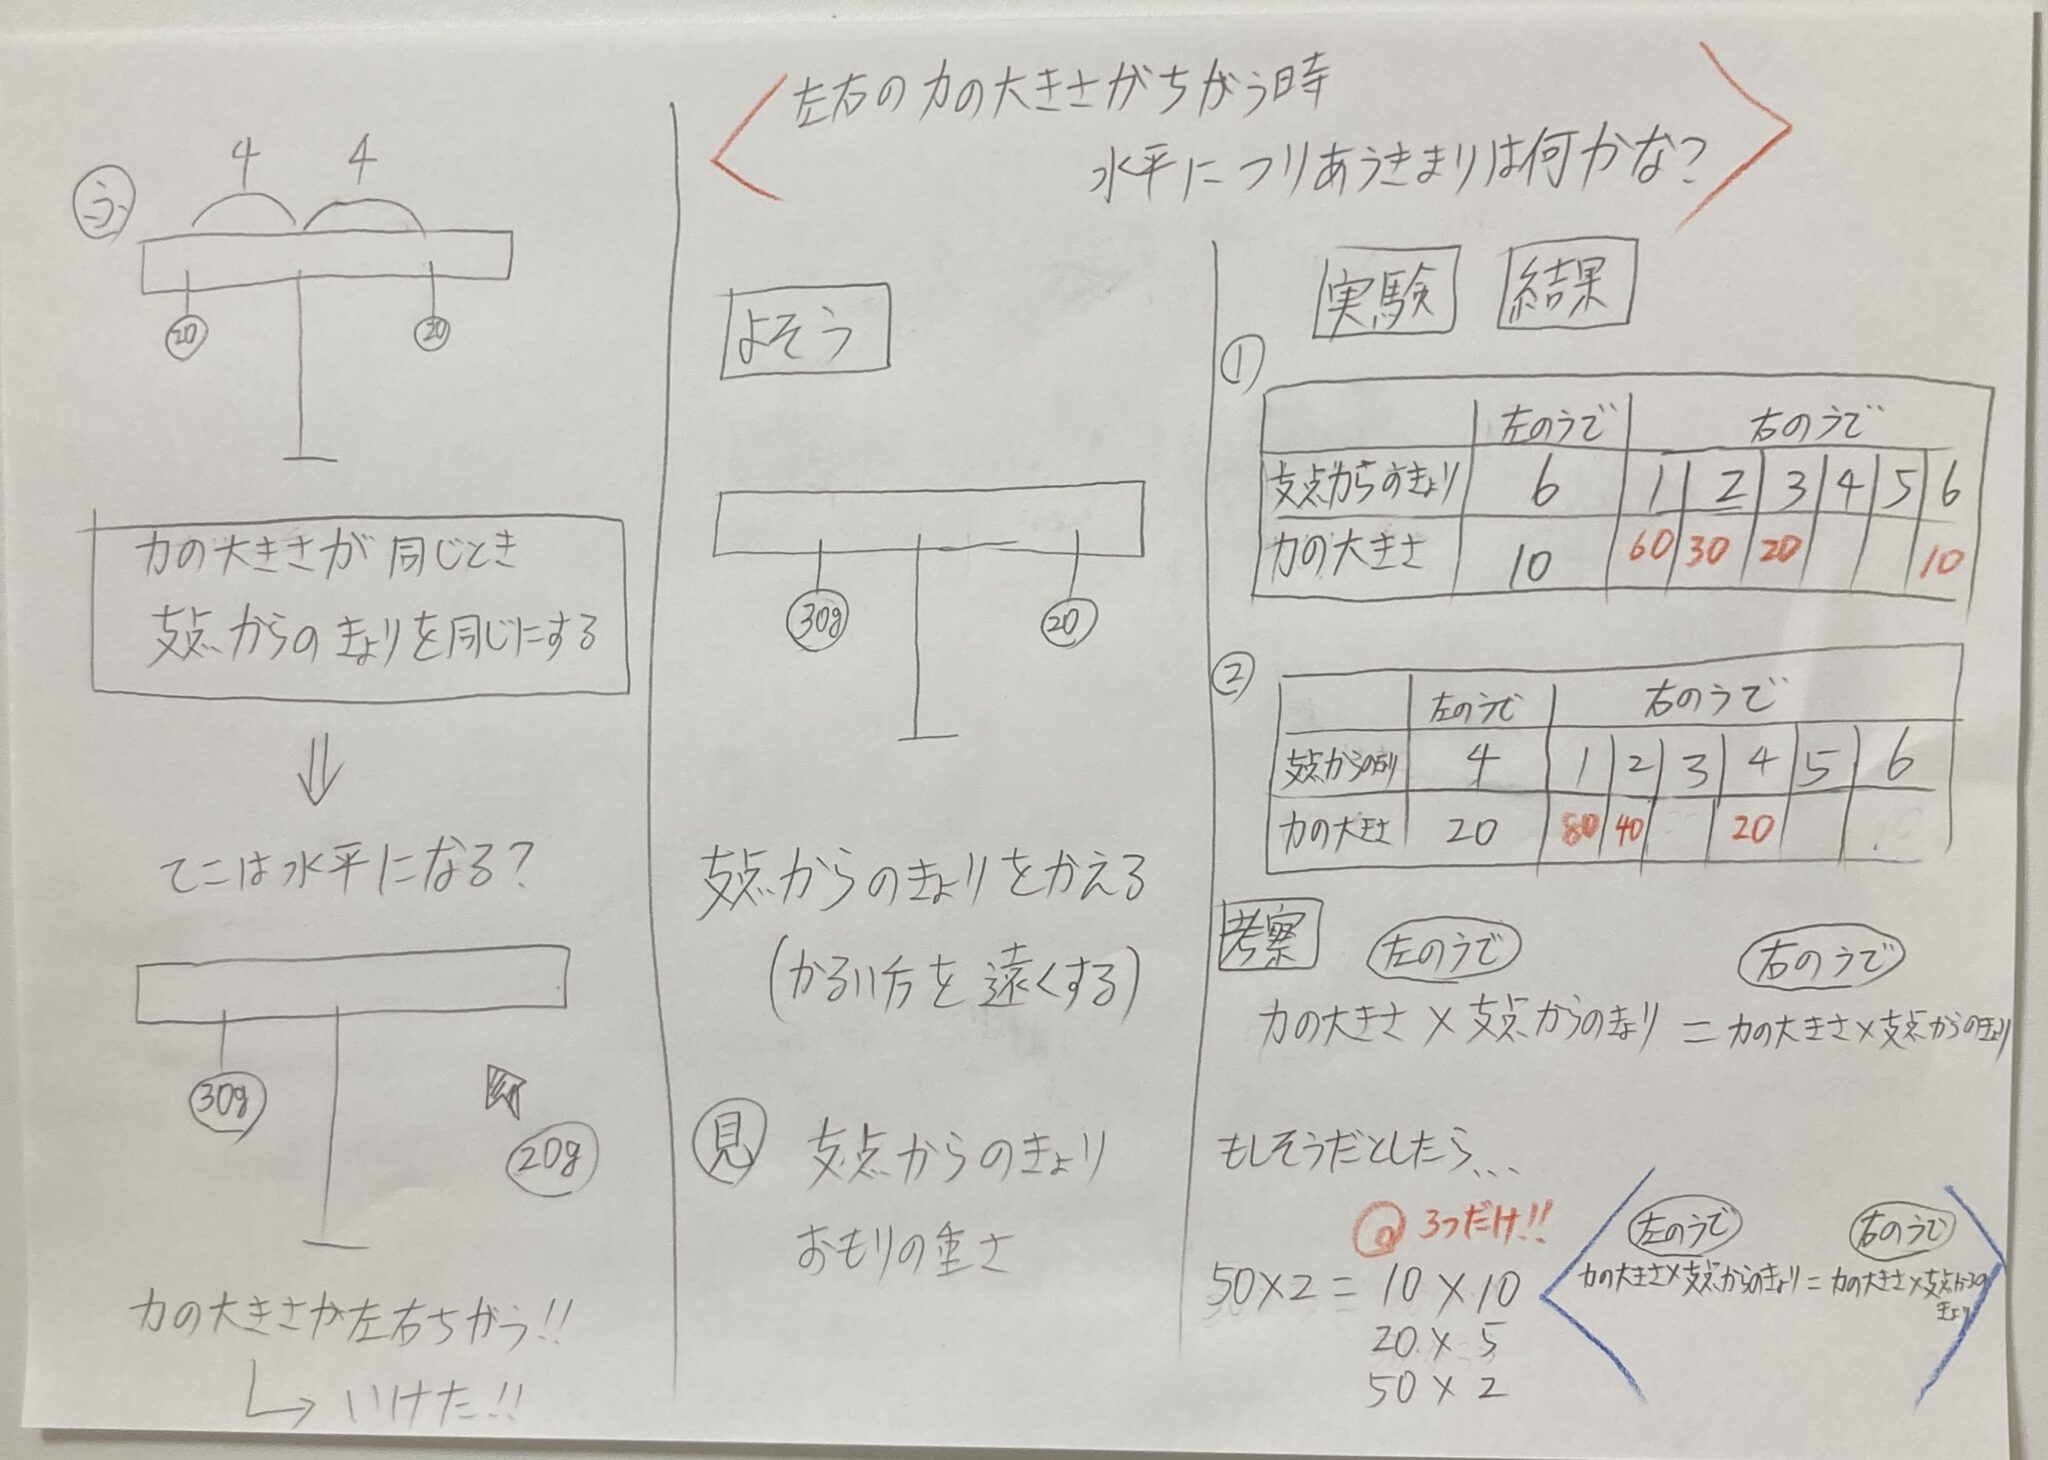 左右の力の大きさがちがう時
水平につりあうきまりは何かな?
4 4
う
20 20
力の大きさが同じとき
支点からのきょりを同じにする
てこは水平になる?
30g
20g
力の大きさが左右ちがう!!
いけた!!
よそう
30g 20
支点からのきょりをかえる
(かるい方を遠くする)
見 支点からのきょり
おもりの重さ
実験 結果
①
左のうで 右のうで
支点からのきょり 6 1 2 3 4 5 6
力の大きさ 10 60 30 20 10
②
左のうで 右のうで
支点からのきょり 4 1 2 3 4 5 6
力の大きさ 20 80 40 20
考察 左のうで 右のうで
力の大きさ×支点からのきょり = 力の大きさ×支点からのきょり
もしそうだとしたら...
3つだけ!!
50×2=10×10
20×5
50×2
左のうで 右のうで
力の大きさ×支点からのきょり=力の大きさ×支点からの
きょり